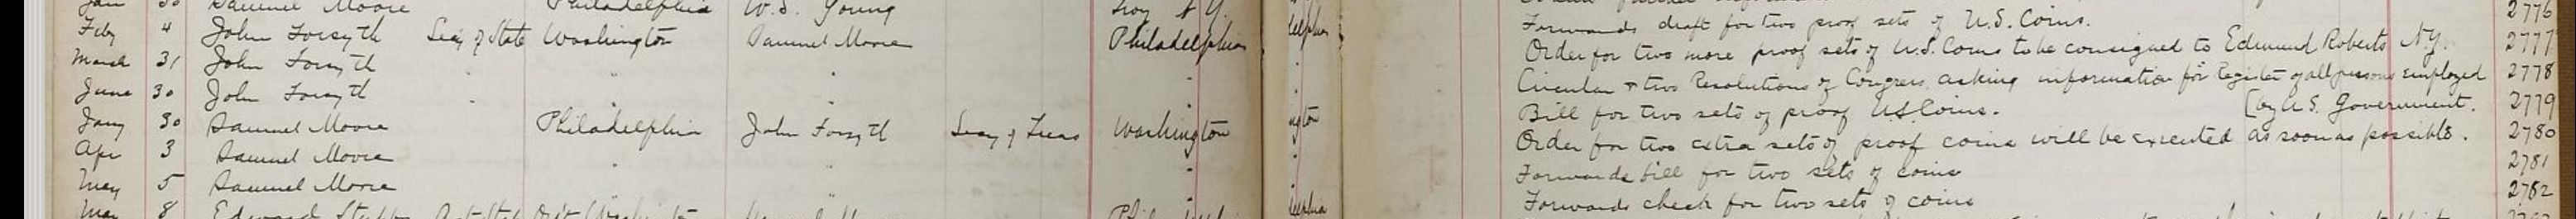 30 Samuel Moore Philadelphia W. S. Young Troy N Y. 2776
Feby 4 John Forsyth Secy of State Washington Samuel Moore Philadelphia elphia Forwards draft for two proof sets of U.S. Coins. 2777
March 31 John Forsyth " " " Order for two more proof sets of U.S. Coins to be consigned to Edmund Roberts N.Y. 2778
June 30 John Forsyth " " " Circular & two Resolutions of Congress asking information for Register of all persons employed [by U.S. Government. 2779
Jany 30 Samuel Moore Philadelphia John Forsyth Secy of Treas Washington ngton Bill for two sets of proof U.S. Coins. 2780
Apr 3 Samuel Moore " " " Order for two extra sets of proof coins will be executed as soon as possible. 2781
May 5 Samuel Moore " " " Forwards bill for two sets of coins 2782
May 8 Edward Washington elphia Forwards check for two sets of coins